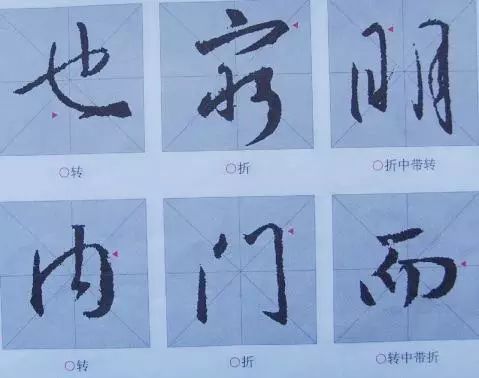 也 窈 明
○转 ○折 ○折中带转
内 门 而
○转 ○折 ○转中带折